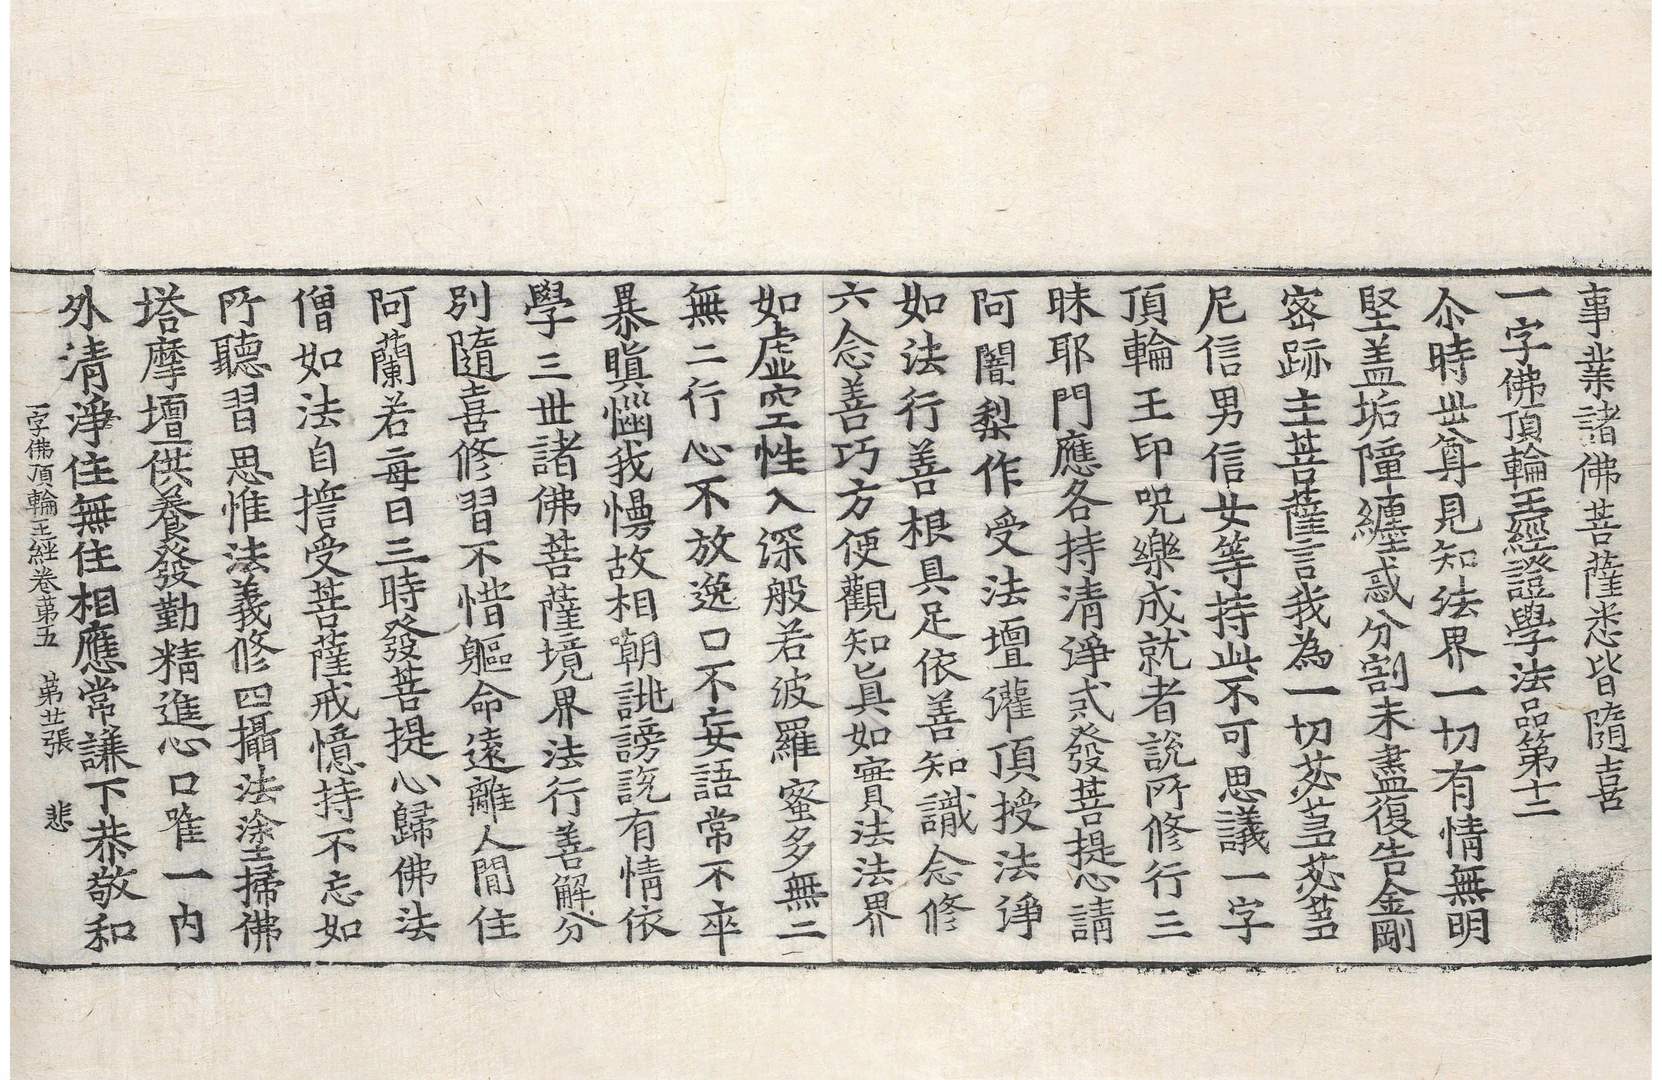 事業諸佛菩薩悉皆隨喜
一字佛頂輪王經證學法品第十二
尒時世尊見知法界一切有情無明
堅盖垢障纏惑分割未盡復告金剛
密跡主菩薩言我為一切苾芻苾芻
尼信男信女等持此不可思議一字
頂輪王印呪樂成就者說所修行三
昧耶門應各持清淨式發菩提心請
阿闍梨作受法壇灌頂授法淨
如法行善根具足依善知識念修
六念善巧方便觀知真如實法法界
如虛空性入深般若波羅蜜多無二
無二行心不放逸口不妄語常不卒
暴瞋惱我慢故相嘲誂謗説有情依
學三世諸佛菩薩境界法行善解分
別隨喜修習不惜軀命遠離人間住
阿蘭若每日三時發菩提心歸佛法
僧如法自誓受菩薩戒憶持不忘如
所聽習思惟法義修四攝法塗掃佛
塔摩壇供養發勤精進心口唯一內
外清淨住無住相應常謙下恭敬和
一字佛頂輪王経卷第五 第廿張 悲